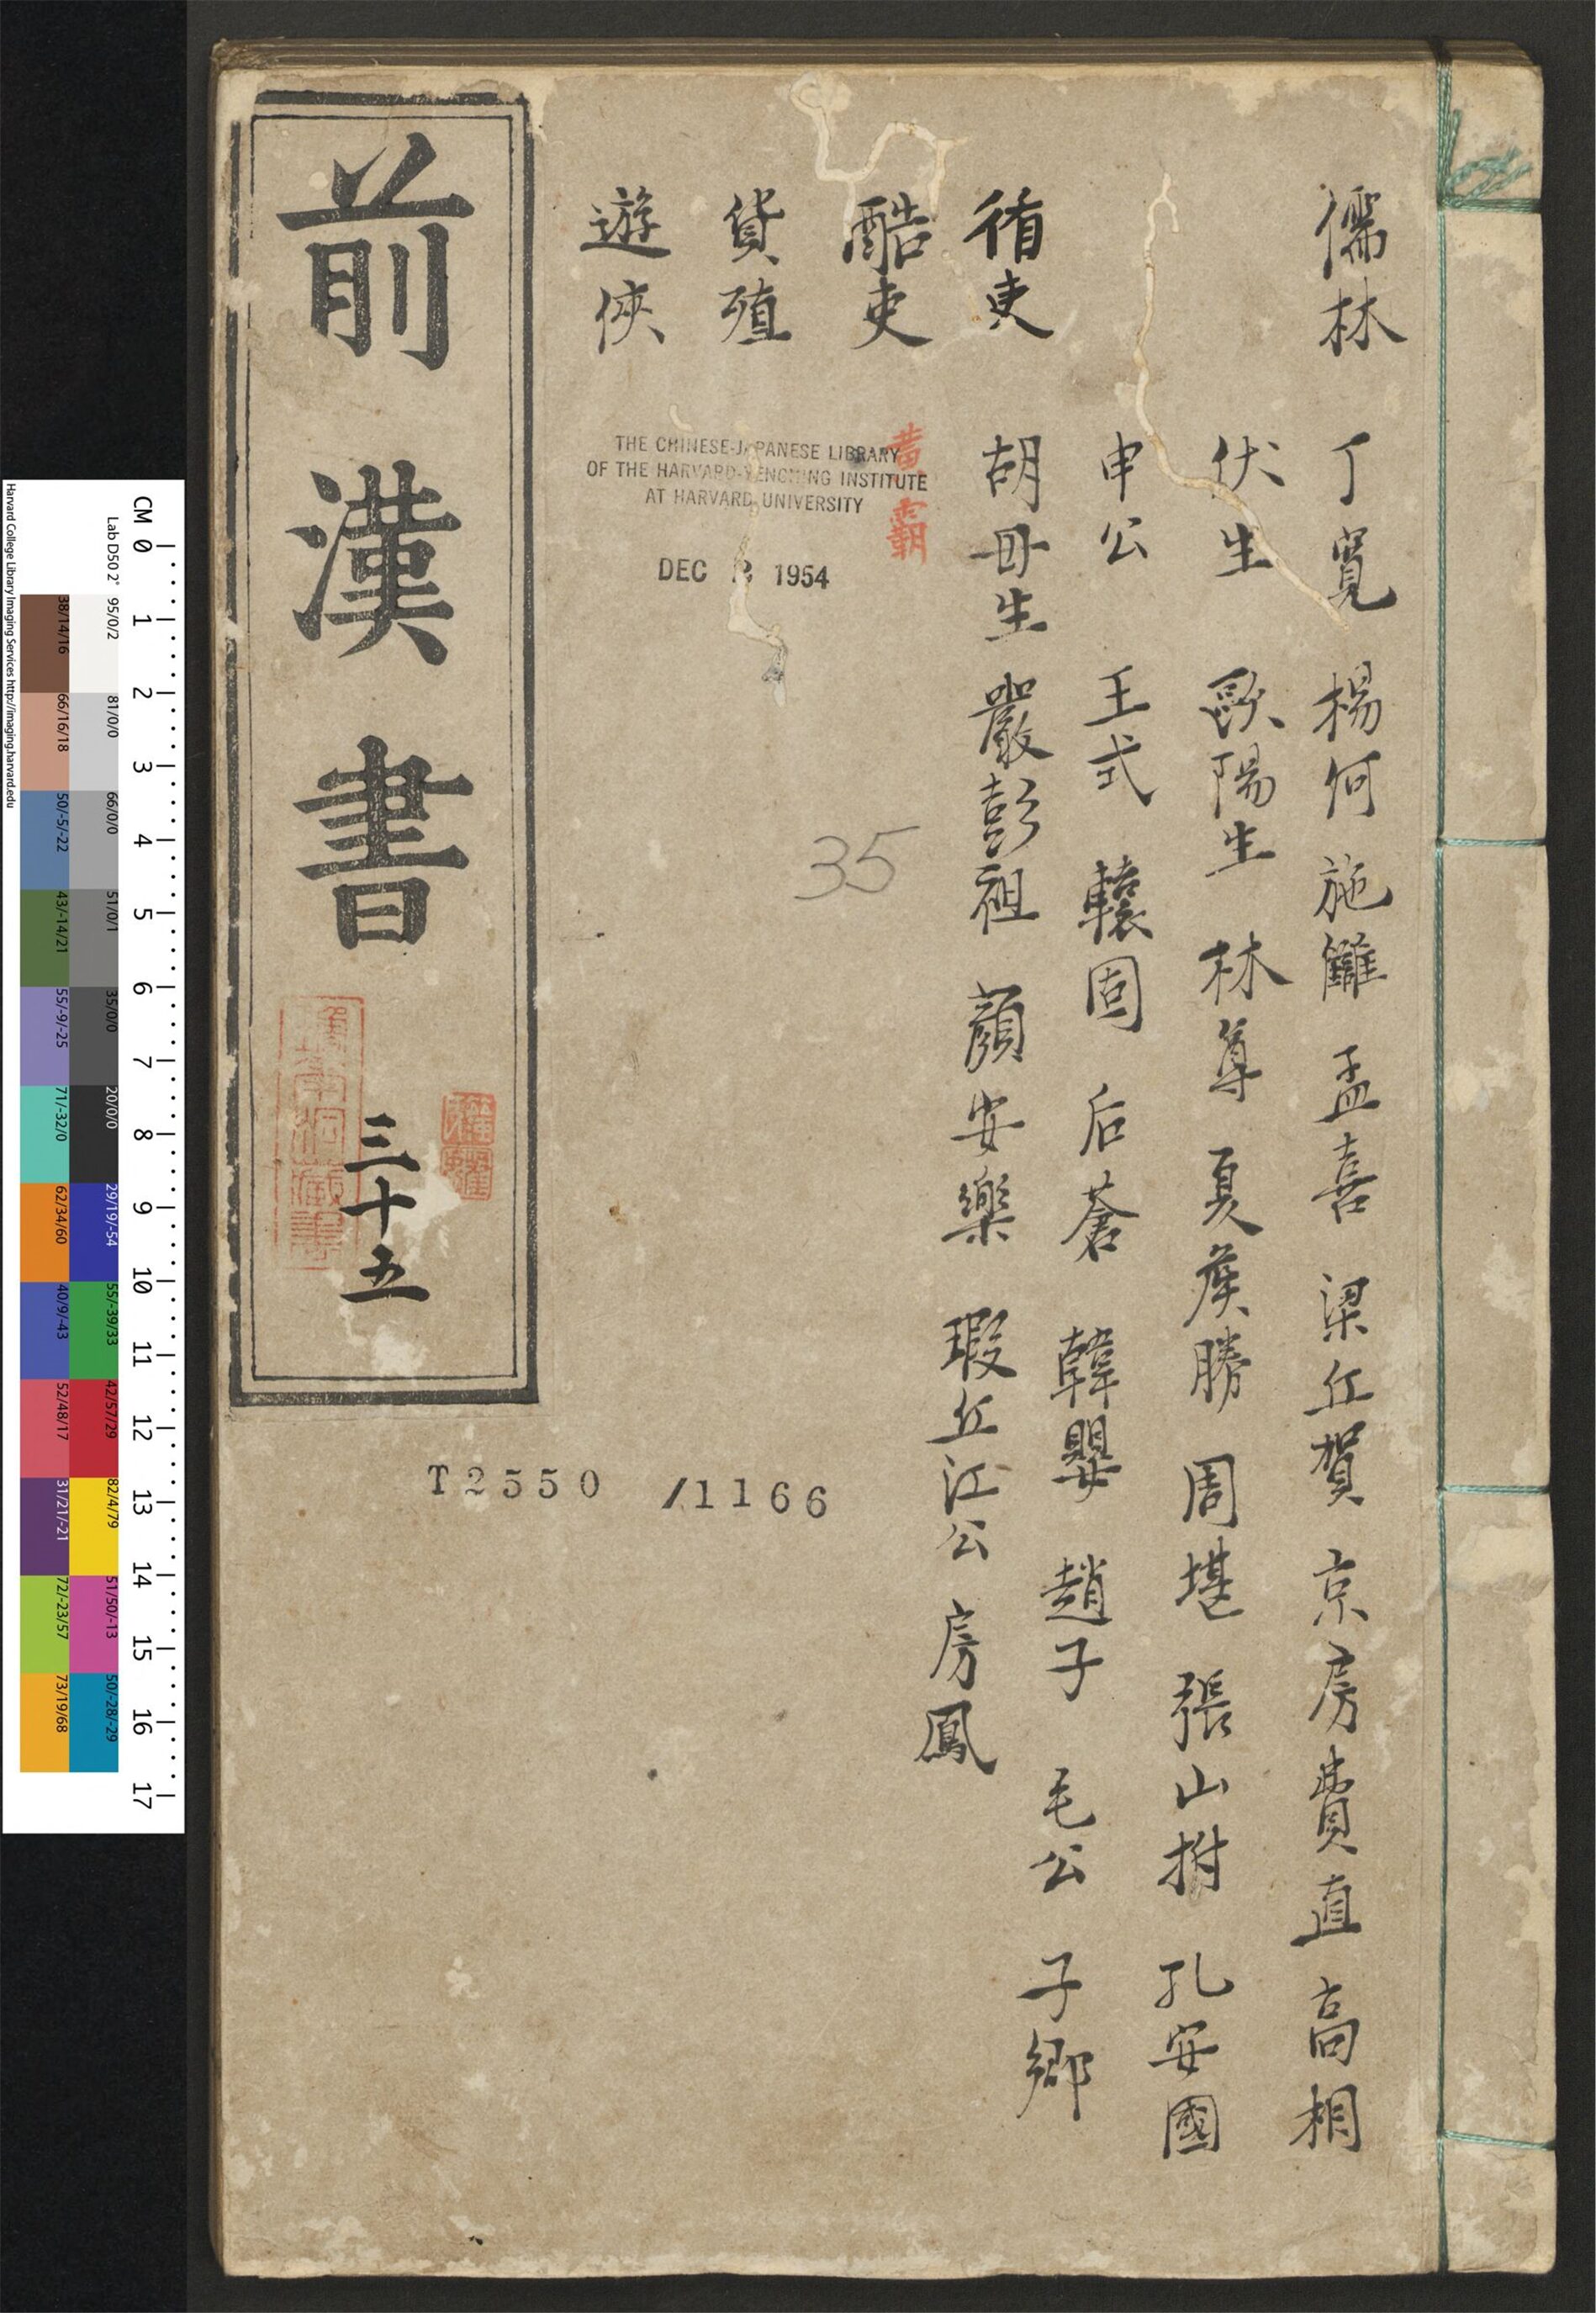 儒林
丁寬 楊何 施讎 孟喜 梁丘賀 京房 費直 高相
伏生 歐陽生 林尊 夏侯勝 周堪 張山拊 孔安國
申公 王式 轅固 后蒼 韓嬰 趙子 毛公 子鄉
胡毋生 嚴彭祖 顏安樂 瑕丘江公 房鳳
循吏
黃霸
酷吏
貨殖
遊俠
THE CHINESE-JAPANESE LIBRARY
OF THE HARVARD-YENCHING INSTITUTE
AT HARVARD UNIVERSITY
DEC 2 1954
35
前漢書 三十五
T2550 /1166
CM 0 1 2 3 4 5 6 7 8 9 10 11 12 13 14 15 16 17
Lab D50 2° 95/0/2 81/0/0 66/0/0 51/0/1 35/0/0 20/0/0 29/19/-54 55/-39/33 42/57/29 82/4/79 51/50/-13 50/-28/-29
38/14/16 66/16/18 50/-5/-22 43/-14/21 55/-9/-25 71/-32/0 62/34/60 40/9/-43 52/48/17 31/21/-21 72/-23/57 73/19/68
Harvard College Library Imaging Services http://imaging.harvard.edu